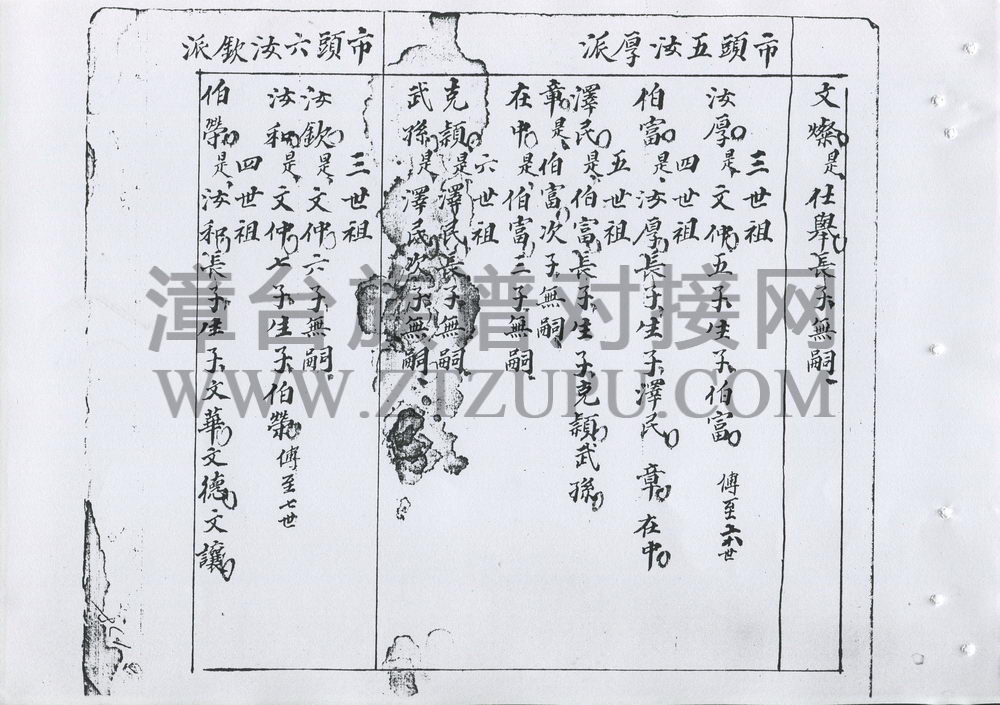 文燦是仕舉長子無嗣
市頭五汝厚派
三世祖
汝厚是文仲五子生子伯富 傳至六世
四世祖
伯富是汝厚長子生子澤民 章 在中
五世祖
澤民是伯富長子生子克頴武孫
章是伯富次子無嗣
在中是伯富三子無嗣
六世祖
克頴是澤民長子無嗣
武孫是澤民次子無嗣
市頭六汝欽派
三世祖
汝欽是文仲六子無嗣
汝和是文仲七子生子伯榮 傳至七世
四世祖
伯榮是汝和長子生子文華文德文讓
漳台族谱对接网
WWW.ZTZUPU.COM